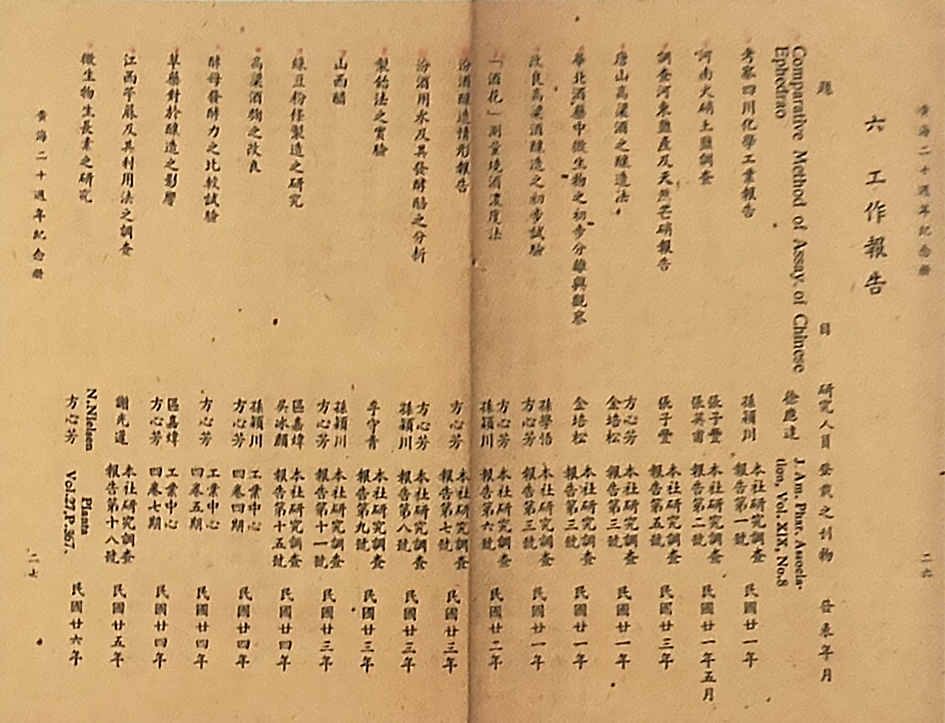 黃海二十週年紀念册
二六
六 工作報告
題 目 研究人員 登載之刊物 發表年月
Comparative Method of Assay, of Chinese Ephedrao 徐應達 J. Am. Phar. Associa-tion, Vol. XIX, No.8
考察四川化學工業報告 孫穎川 本社研究調查報告第一號 民國廿一年
河南火硝土鹽調查 張子豐 張英甫 本社研究調查報告第二號 民國廿一年五月
調查河東鹽產及天然芒硝報告 張子豐 本社研究調查報告第五號 民國廿三年
唐山高粱酒之釀造法 方心芳 金培松 本社研究調查報告第三號 民國廿一年
華北酒藥中微生物之初步分離與觀察 金培松 本社研究調查報告第三號 民國廿一年
改良高粱酒釀造之初步試驗 孫學悟 方心芳 本社研究調查報告第三號 民國廿一年
「酒花」測量燒酒濃度法 方心芳 孫穎川 本社研究調查報告第六號 民國廿二年
汾酒釀造情形報告 方心芳 本社研究調查報告第七號 民國廿三年
汾酒用水及其發酵醅之分析 方心芳 孫穎川 本社研究調查報告第八號 民國廿三年
製飴法之實驗 李守青 本社研究調查報告第九號 民國廿三年
山西醋 孫穎川 方心芳 本社研究調查報告第十一號 民國廿三年
綠豆粉條製造之研究 區嘉煒 吳冰顏 本社研究調查報告第十五號 民國廿四年
高粱酒麴之改良 孫穎川 方心芳 工業中心四卷四期 民國廿四年
酵母發酵力之比較試驗 方心芳 工業中心四卷五期 民國廿四年
草藥對於釀造之影響 區嘉煒 方心芳 工業中心四卷七期 民國廿四年
江西苧蔴及其利用法之調查 謝光蘧 本社研究調查報告第十八號 民國廿五年
微生物生長素之研究 N.Nielsen 方心芳 Planta Vol.27,P.367. 民國廿六年
黃海二十週年紀念册
二七